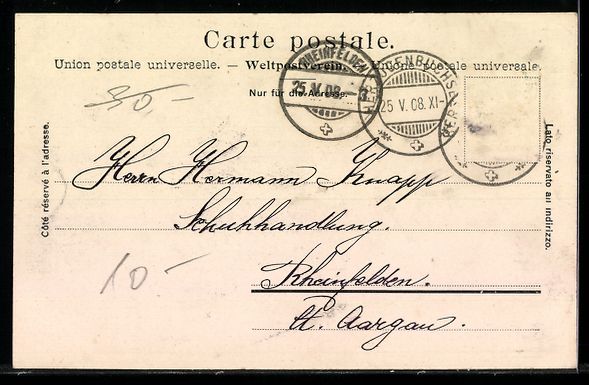 Carte postale.
Union postale universelle. — Weltpostverein. — Unione postale universale.
RHEINFELDEN
25.V.08.-3
HERZOGENBUCHSEE
25 V. 08. XI-
Nur für die Adresse.
30,-
Côté réservé à l'adresse.
Lato riservato all'indirizzo.
Herrn Hermann Knapp
Schuhhandlung.
10.-
Rheinfelden.
Ct. Aargau.